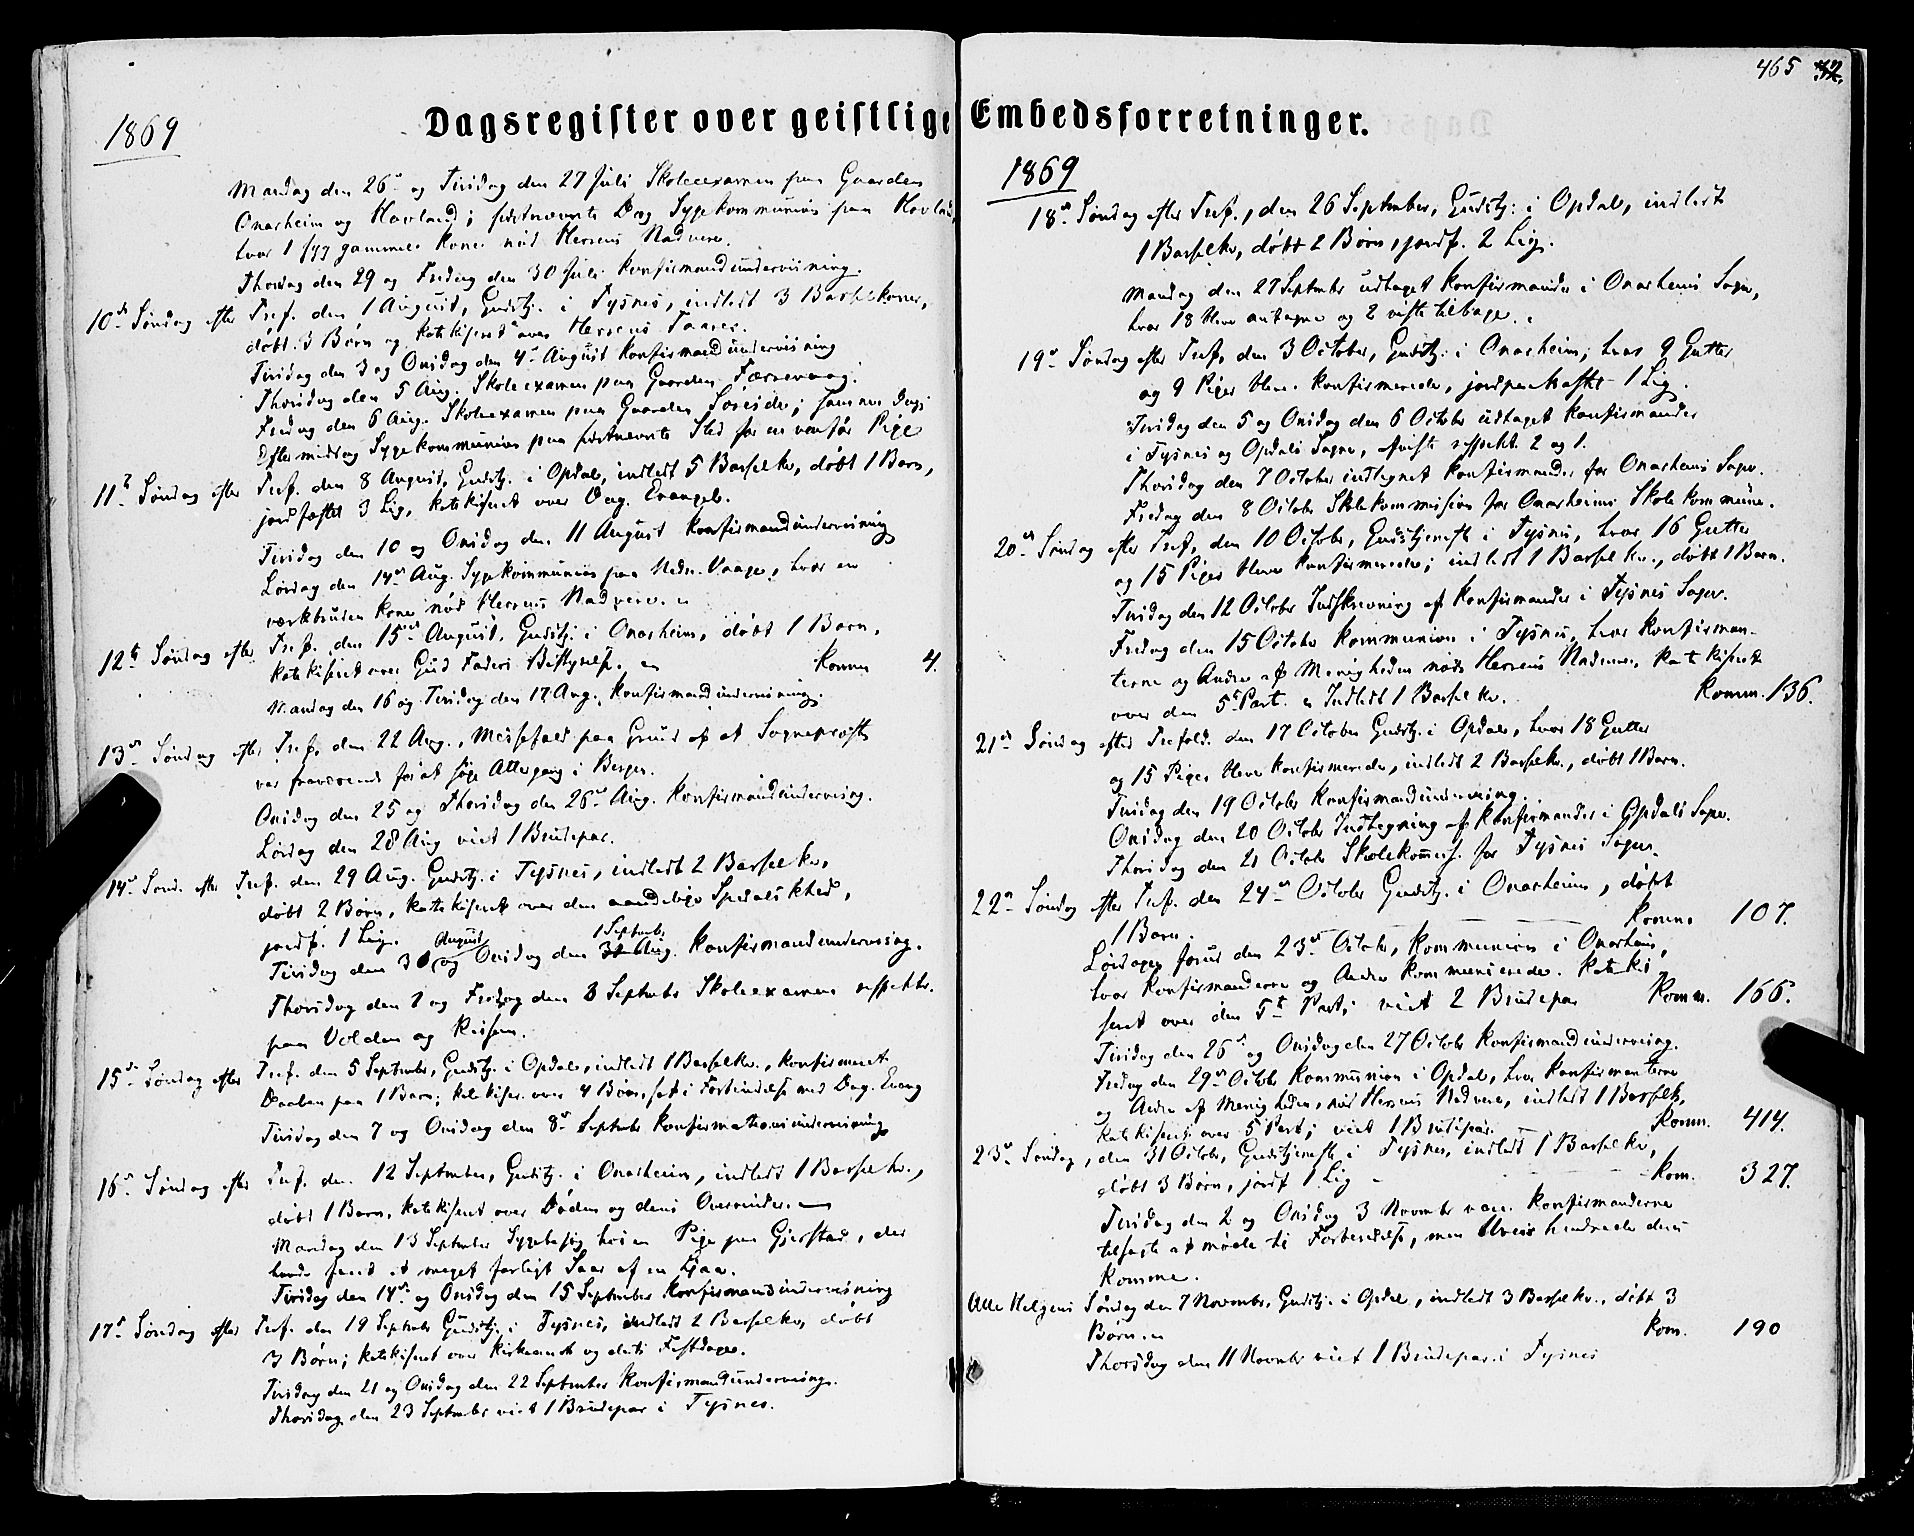 465 42.
Dagsregister over geistlige Embedsforretninger.
1869
Mandag den 26de og Tirsdag den 27 Juli Skoleexamen paa Gaarden
Onarheim og Hovland; førstnævnte Dag Sygekommunion paa Hovland,
hvor 1 syg gammel Kone nød Herrens Nadvere.
Thorsdag den 29 og Fredag den 30 Juli Konfirmandundervisning.
10de Søndag efter Tref. den 1 August, Gudstj. i Tysnes, indledt 3 Barselkoner,
døbt 3 Børn og katekiseret over Herrens Taarer.
Tirsdag den 3 og Onsdag den 4de August Konfirmandundervisning
Thorsdag den 5 Aug. Skoleexamen paa Gaarden Færevaag.
Fredag den 6 Aug. Skoleexamen paa Gaarden Søreide; samme Dags
Eftermiddag Sygekommunion paa førstnævnte Sted for en vanfør Pige
11te Søndag efter Tref. den 8 August, Gudstj. i Opdal, indledt 5 Barselkv, døbt 1 Barn,
jordfæstet 3 Lig, katekiseret over Dag. Evangel.
Tirsdag den 10 og Onsdag den 11 August Konfirmandundervisning
Lørdag den 14de Aug. Sygekommunion paa Nedre Vaage, hvor en
værkbruden Kone nød Herrens Nadvere.
12te Søndag efter Tref. den 15de August, Gudstj. i Onarheim, døbt 1 Barn,
katekiseret over Gud Faders Bestyrelse. Komm 4.
Mandag den 16 og Tirsdag den 17 Aug. Konfirmandundervisning.
13de Søndag efter Tref. den 22 Aug., Messefald paa Grund af at Sognepræst
var fraværende for at søge Altergang i Bergen.
Onsdag den 25 og Thorsdag den 26de Aug. Konfirmandundervisning.
Lørdag den 28 Aug viet 1 Brudepar.
14de Sønd. efter Tref. den 29 Aug. Gudstj. i Tysnes, indledt 2 Barselkv,
døbt 2 Børn, katekiseret over den aandelige Spedalskhed,
jordf. 1 Lig.
Tirsdag den 30 August og Onsdag den 31 Aug. 1 Septemb. Konfirmandundervisning.
Thorsdag den 2 og Fredag den 3 Septembr Skoleexamen respektiv.
paa Volden og Reisen.
15de Søndag efter Tref. den 5 September, Gudstj. i Opdal, indledt 1 Barselkv., konfirmeret
Daaben paa 1 Barn; katekiser. over 4 Børn, sat i Forbindelse med Dag. Evang
Tirsdag den 7 og Onsdag den 8de Septembr Konfirmationsundervisning
16de Søndag efter Tref. den 12 September, Gudstj. i Onarheim, indledt 1 Barselkv.,
døbt 1 Barn, katekiseret over Døden og dens Overvinder.
Mandag den 13 September Sygebesøg hos en Pige paa Gjerstad, der
havde faaet et meget farligt Saar af en Ljaa.
Tirsdag den 14de og Onsdag den 15 September Konfirmandundervisning
17de Søndag efter Tref. den 19 Septembr Gudstj. i Tysnes, indledt 2 Barselkv, døbt
3 Børn; katekiseret over Kirkeaaret og dets Festdager.
Tirsdag den 21 og Onsdag den 22 September Konfirmandundervisning.
Thorsdag den 23 Septembr viet 1 Brudepar i Tysnes.
1869
18de Søndag efter Tref., den 26 September, Gudstj. i Opdal, indledt
1 Barselkv, døbt 2 Børn, jordf. 2 Lig.
Mandag den 27 Septembr udtaget Konfirmander i Onarheims Sogn,
hvor 18 bleve antagne og 2 viste tilbage.
19de Søndag efter Tref, den 3 October, Gudstj. i Onarheim, hvor 9 Gutter
og 9 Piger bleve konfirmerede, jordpaakastet 1 Lig.
Tirsdag den 5 og Onsdag den 6 October udtaget Konfirmander
i Tysnes og Opdals Sogne, afviste respekt. 2 og 1.
Thorsdag den 7 October indtegnet Konfirmander for Onarheims Sogn.
Fredag den 8 October Skolekommission for Onarheims Skolekommune.
20de Søndag efter Tref, den 10 October, Gudstjeneste i Tysnes, hvor 16 Gutter
og 15 Piger bleve konfirmerede; indledt 1 Barselkv., døbt 1 Barn.
Tirsdag den 12 October Indskrivning af Konfirmander i Tysnes Sogn.
Fredag den 15 October Kommunion i Tysnes, hvor Konfirman-
terne og Andre af Menigheden nøde Herrens Nadvere, katekiseret
over den 5te Part. Indledt 1 Barselkv. Komm. 136.
21de Søndag efter Trefold. den 17 October Gudstj. i Opdal, hvor 18 Gutter
og 15 Piger bleve konfirmerede, indledt 2 Barselkv., døbt 1 Barn.
Tirsdag den 19 October Konfirmandundervisning.
Onsdag den 20 October Indtegning af Konfirmander i Opdals Sogn.
Thorsdag den 21 October Skolekommis. for Tysnes Sogn.
22de Søndag efter Tref. den 24de October Gudstj. i Onarheim, døbt
1 Barn. Komm. 107.
Lørdagen forud den 23de October, Kommunion i Onarheim,
hvor Konfirmanderne og Andre kommunicerede. Kateki
seret over den 5te Part; viet 2 Brudepar Komm. 166.
Tirsdag den 26de og Onsdag den 27 October Konfirmandundervisning.
Fredag den 29de October Kommunion i Opdal, hvor Konfirmanterne
og Andre af Menigheden, nød Herrens Nadvere, indledt 1 Barselk,
katekiseret over 5 Part; viet 1 Brudepar. Komm. 414.
23de Søndag, den 31 October, Gudstjeneste i Tysnes, indledt 1 Barselkv,
døbt 3 Børn, jordf 1 Lig Kom. 327.
Tirsdag den 2 og Onsdag 3 Novembr vare Konfirmanderne
tilsagte at møde til Forberedelse, men Uveir hindrede dem
Komme.
Alle Helgens Søndag den 7 Novembr. Gudstj. i Opdal, indledt 3 Barselkv., døbt 3
Børn. Kom. 190
Thorsdag den 11 Novembr viet 1 Brudepar i Tysnes